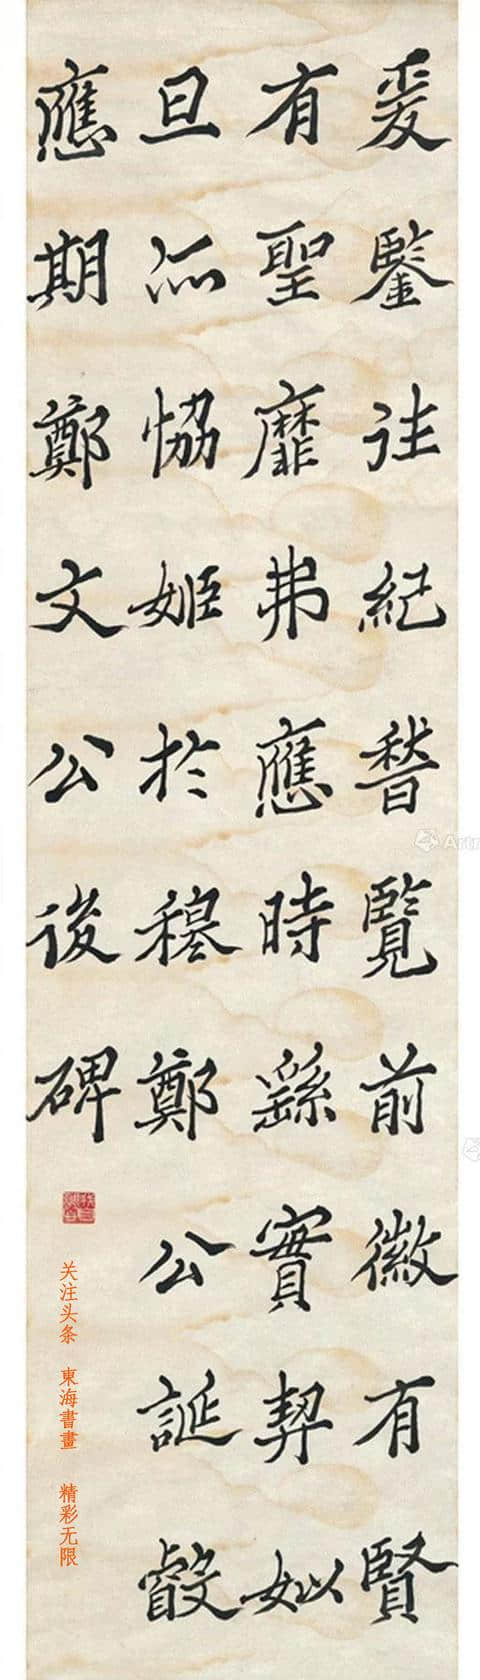 爰鑒往紀稽覽前徽有賢
有聖靡弗應時繇實契姒
旦亦恊姬於穆鄭公誕叡
應期鄭文公後碑
关注头条 東海書畫 精彩无限